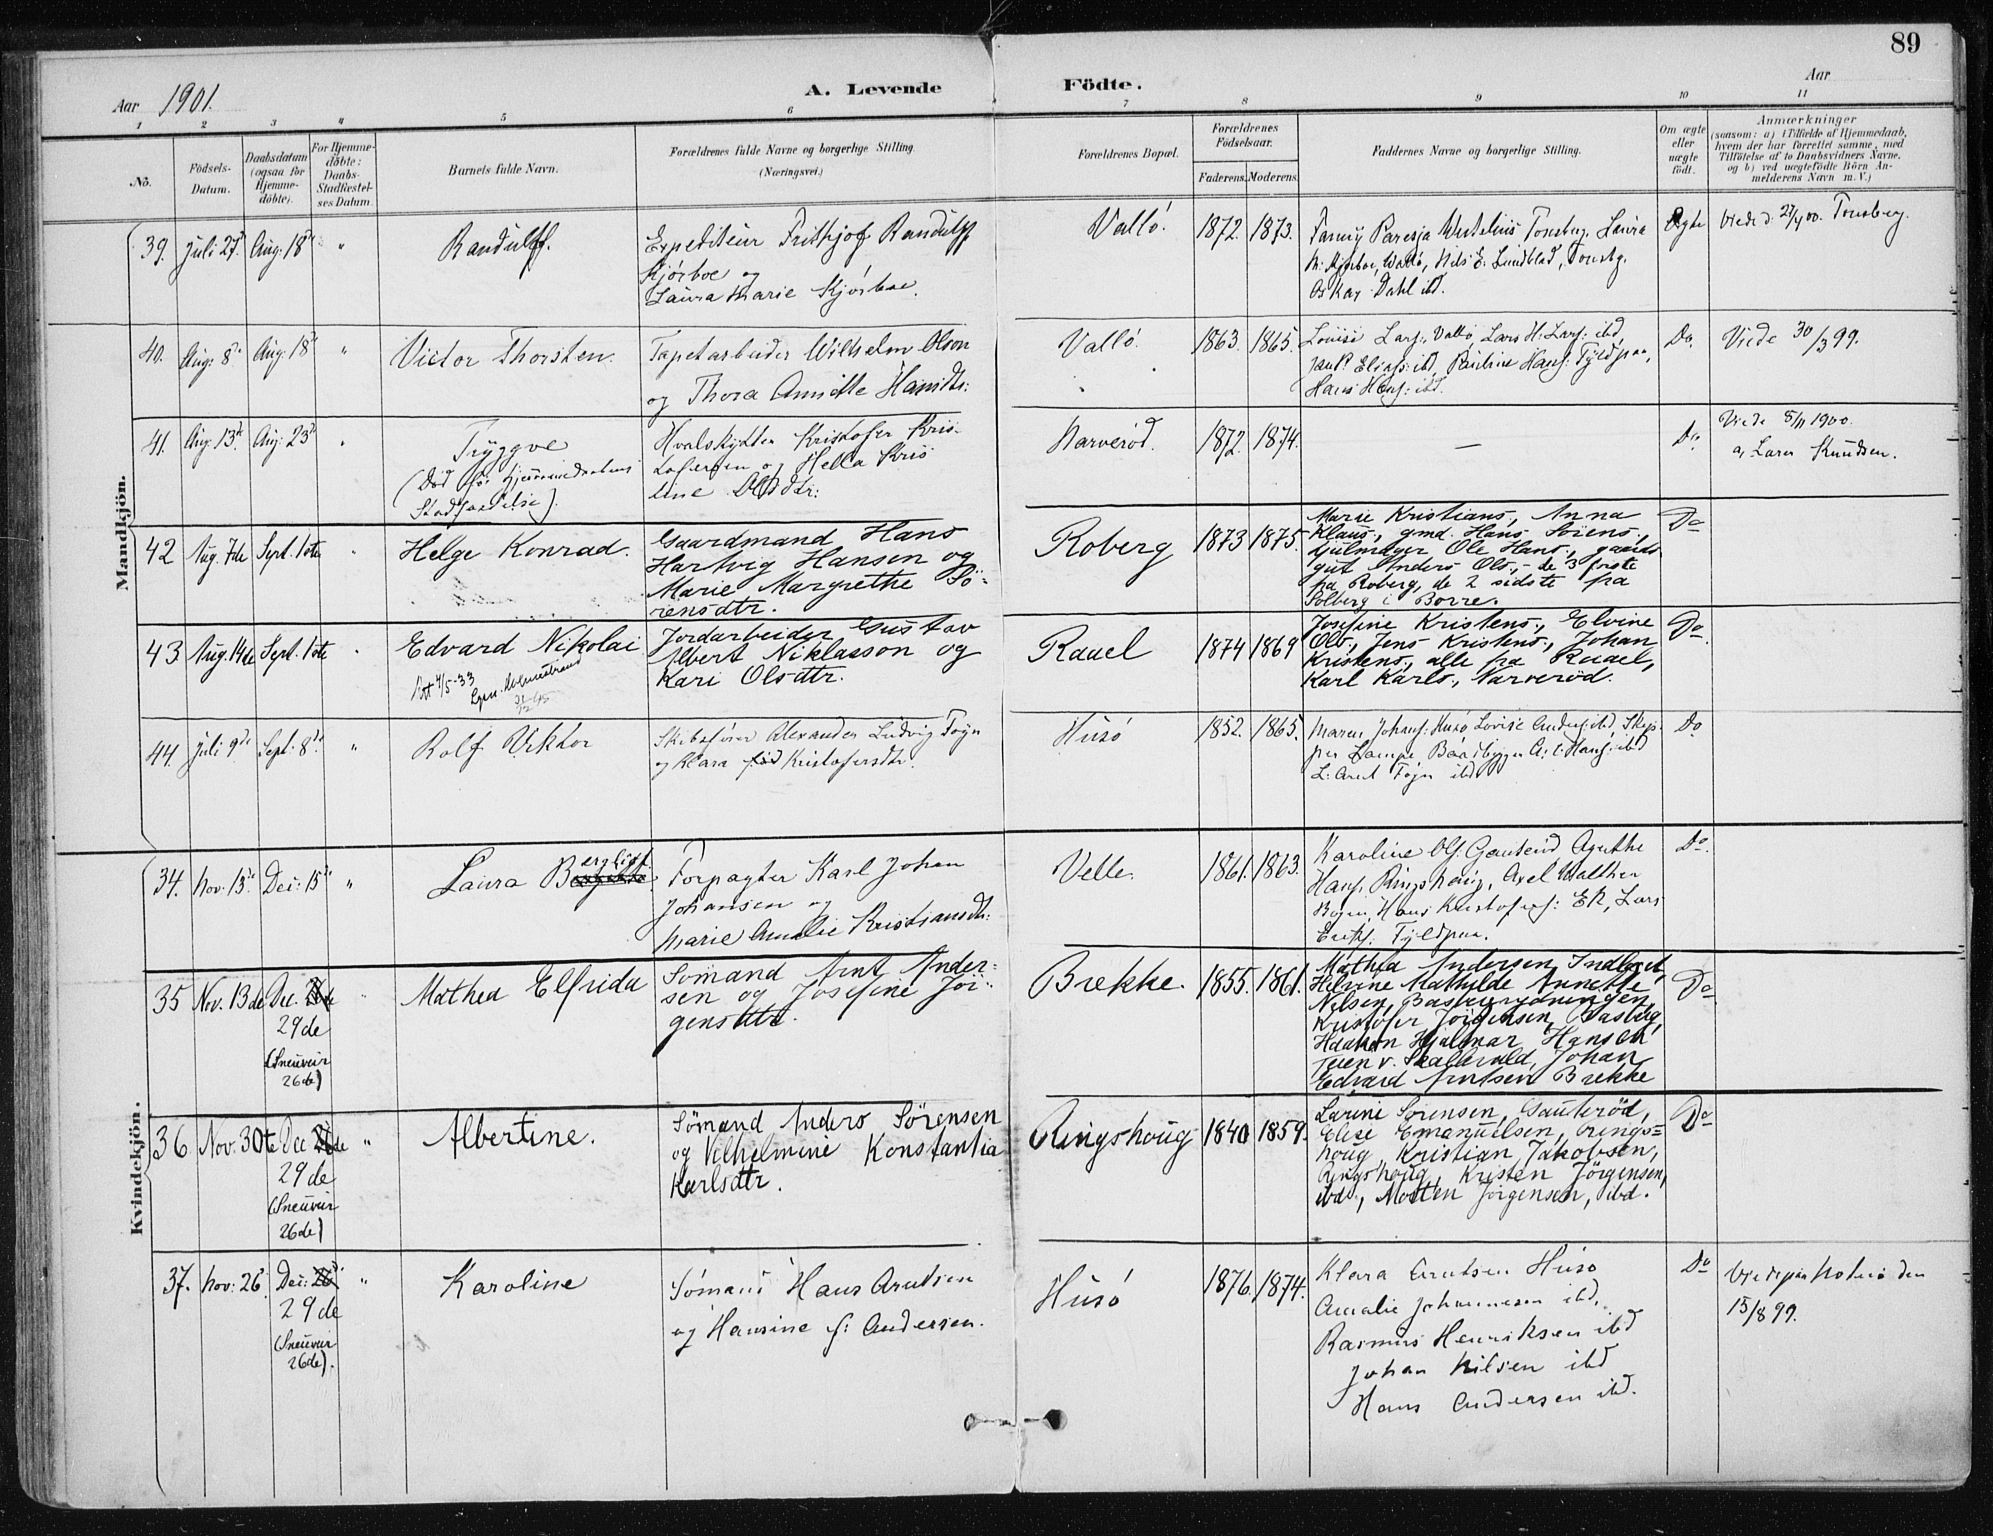 89
Aar 1901.
A. Levende Födte.
Aar
1 2 3 4 5 6 7 8 9 10 11
No.
Födsels-Datum.
Daabsdatum (ogsaa for Hjemme-döbte).
For Hjemme-döbte: Daabs-Stadfæstel-ses Datum
Barnets fulde Navn.
Forældrenes fulde Navne og borgerlige Stilling. (Næringsvei.)
Forældrenes Bopæl.
Forældrenes Födselsaar.
Faderens. Moderens.
Faddernes Navne og borgerlige Stilling.
Om ægte eller uægte födt.
Anmærkninger (saasom: a) i Tilfælde af Hjemmedaab, hvem der har forrettet samme, med Tilföielse af to Daabsvidners Navne, og b) ved uægtefödte Börn An-melderens Navn m. V.)
Mandkjön.
39. Juli 27d Aug: 18de "
Randulff.
Expediteur Frithjof Randulff
Kjörboe og
Laura Marie Kjörboe.
Vallö. 1872. 1873.
Laura
M. Kjörboe, Vallö, Nils E. Lundblad, Tonsbg.
Oskar Dahl ibd.
Ægte
Viede d. Tonsberg.
40. Aug: 8de Aug: 18de "
Victor Thorsten.
Tapetarbeider Wilhelm Olson
og Thora Annette Hansdtr:
Vallö. 1863. 1865.
Louise Lars:, Vallö, Lars H. Lars: ibd,
Elias: ibd, Pauline Hans: Fyldpaa,
Hans Hans: ibd.
Do.
Viede 30/3 99.
41. Aug: 13de Aug: 23de "
Tryggve
(Död för Hjemmedaabens
Stadfæstelse).
Hvalskytter Kristofer Kris-
tofersen og Hella Kris
tine Olsdtr:
Narveröd. 1872. 1874.
—
Do.
Viede 1900.
a, Lars Knudsen.
42 Aug. 7de Sept. 1ste "
Helge Konrad.
Gaardmand Hans
Hartvig Hansen og
Marie Margrethe Sö-
rensdtr.
Roberg 1873 1875.
Marie Kristians., Anna
Klaus., gmd. Hans Sörens.,
Hjulmager Ole Hans., gaards-
gut Anders Ols., - de 3 förste
paa Roberg, de 2 sidste paa
Solberg i Borre.
Do
43 Aug. 14de Sept. 1ste "
Edvard Nikolai
Att 4/5-33
Jordarbeider Gustav
Albert Niklasson og
Kari Olsdtr.
Raael 1874 1869
Josefine Kristens., Elvine
Ols., Jens Kristens., Johan
Kristens., alle paa Raael,
Karl Karls., Narveröd.
Do
44. Juli 9de Sept: 8de "
Rolf Viktor
Skibsförer Alexander Ludvig Föyn
og Klara föd Kristofersdtr.
Husö 1852. 1865.
Maren Johns: Husö, Lovise Anders: ibd, Skip-
per Baadbygger A: Hans: ibd
L: Arnt Föyn ibd
Do
Kvindekjön.
34. Nov. 13de Dec: 15de "
Laura Bergliot
Forpagter Karl Johan
Johansen og
Marie Amalie Kristiansdtr:
Velle. 1861. 1863.
Karoline Ols: Gauteröd Agathe
Hans: Ringshoug, Axel Walther
Hans Kristofers: Ek, Lars
Eriks: Fyldpaa.
Do
35 Nov. 13de Dec.
29de
(Sneuveir
26de)
Mathea Elfrida
Sömand Arnt Ander-
sen og Josefine Jör-
gensdtr.
Brekke. 1855. 1861.
Mathea Andersen Indlaget,
Helvine Mathilde Annette
Nilsen, Basbergrydningen
Kristofer Jörgensen, Basberg,
Haakon Hjalmar Hansen
Teien v. Skallevold, Johan
Edvard Arntsen Brekke
Do
36 Nov. 30te Dec
29de
(Sneuveir
26de)
"
Albertine.
Sömand Anders Sörensen
og Vilhelmine Konstantia
Karlsdtr.
Ringshoug 1840 1859.
Larine Sörensen, Gauteröd,
Elise Emanuelsen, Rings-
houg, Kristian Jakobsen,
Ringshoug, Kristen Jörgensen,
ibd., Morten Jörgensen, ibd.
Do
37. Nov: 26. Dec: 26de
29de
(Sneuveir
26de).
"
Karoline
Sömand Hans Arntsen
og Hansine f: Andersen.
Husö 1876. 1874.
Klara Arntsen Husö
Amalie Johannesen ibd.
Rasmus Henriksen ibd
Johan Nilsen ibd
Hans Andersen ibd.
Do
Viede paa Noterö den
15/8 99.